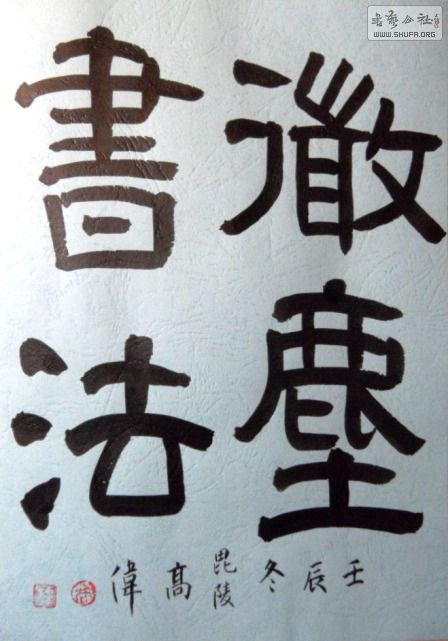 微塵
書法
壬辰冬毘陵高偉
WWW.SHUFA.ORG